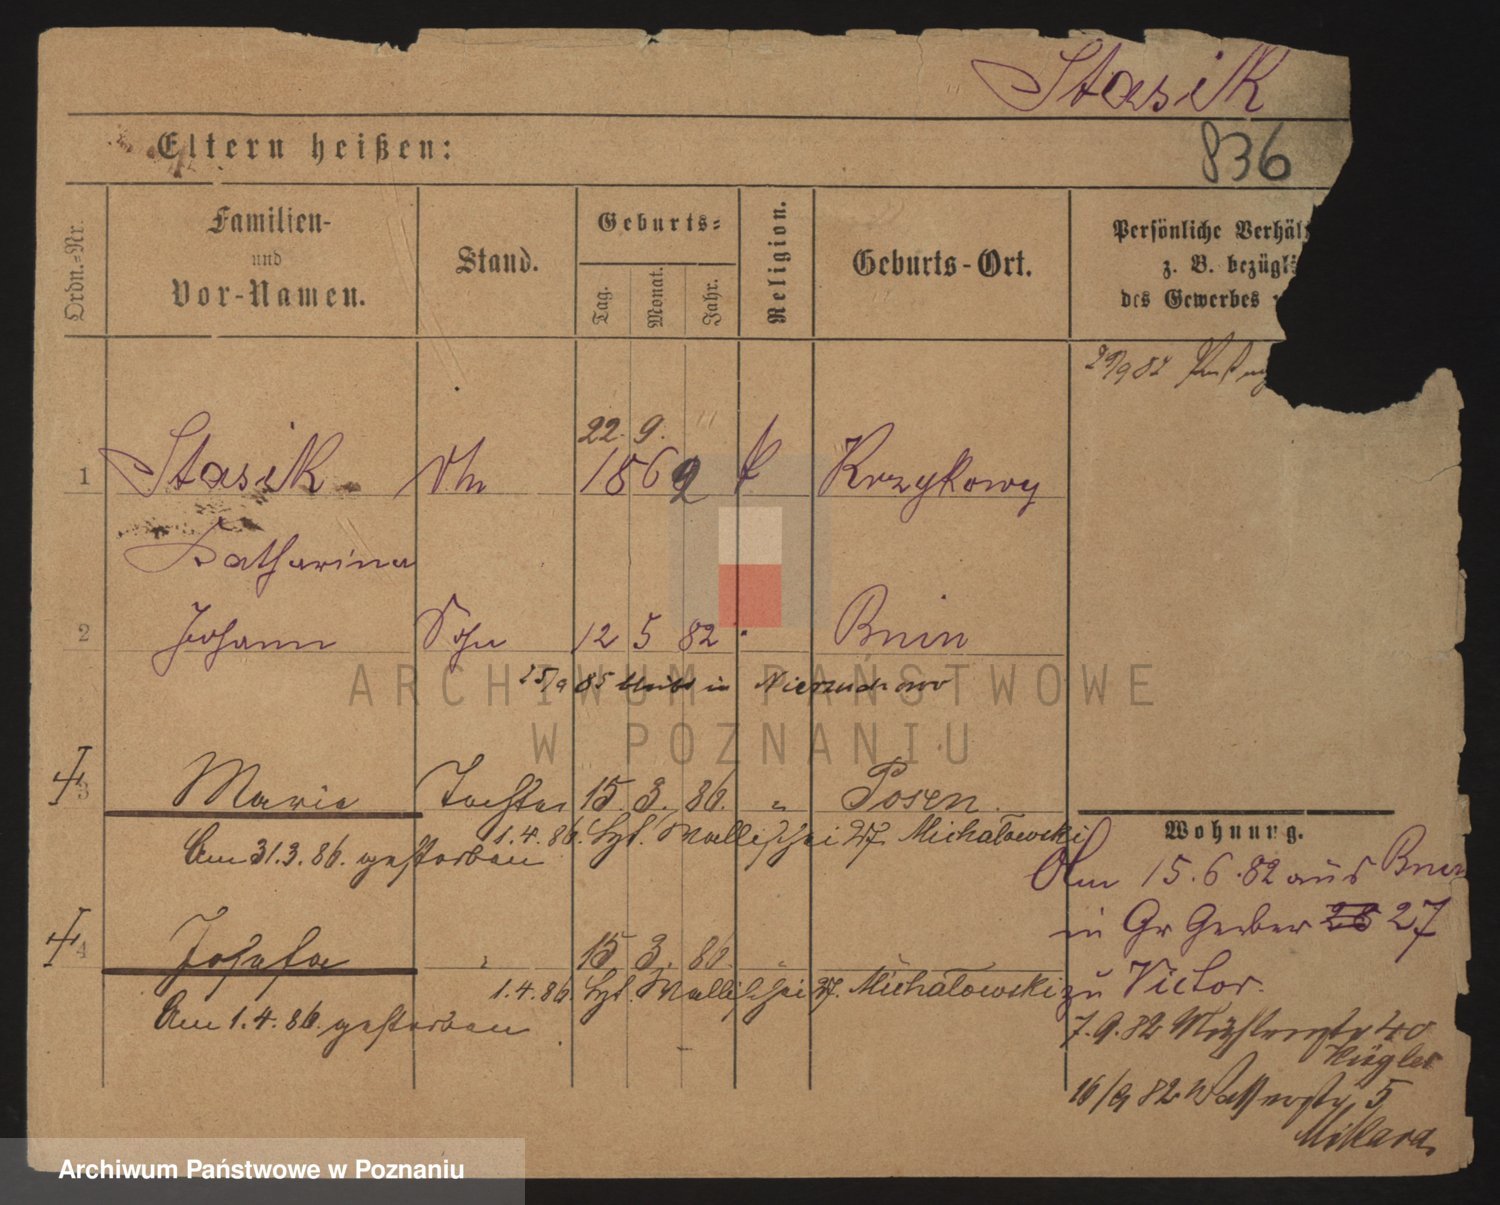 Stasik
836
Eltern heißen:
Ordn.-Nr.
Familien-
und
Vor-Namen.
Stand.
Geburts-
Tag.
Monat.
Jahr.
Religion.
Geburts-Ort.
Persönliche Verhält
z. B. bezügl
des Gewerbes
29/9 82
22. 9.
1 Stasik 1869 k Krzykowy
Katharina
2 Johann Sohn 12 5 82 " Bnin
25/9 85 in
3 Maria Tochter 15. 3. 86. " Posen.
1.4.86. Wallischei 27. Michałowski
Am 31.3.86. gestorben
4 Josefa " 15 3. 86. " "
1.4.86. Wallischei 27. Michałowski
Am 1.4.86. gestorben
Wohnung.
Am 15.6.82 aus Bnin
in Gr Gerber 26 27
zu Victor.
7.9.82 Mühlenstr 40
Kügler
16/9 82 Wasserstr 5
ARCHIWUM PAŃSTWOWE
W POZNANIU
Archiwum Państwowe w Poznaniu